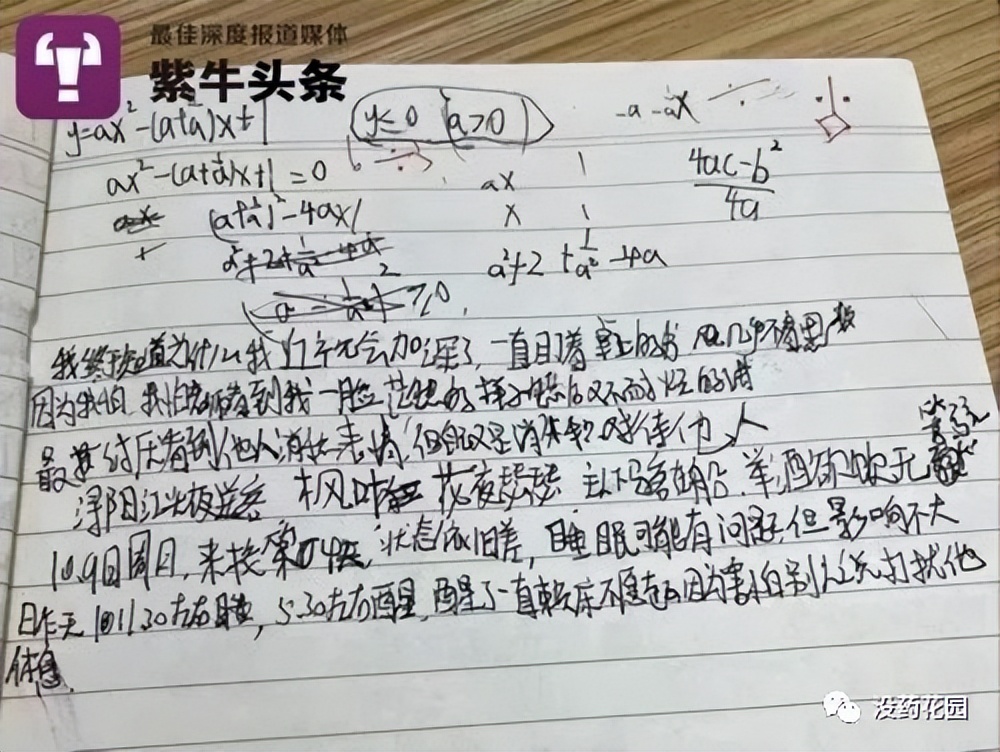 最佳深度报道媒体
紫牛头条
y=ax²-(a+1/a)x+1
y≤0 a>0
-a -1/a x
ax²-(a+1/a)x+1=0
ax 1
4ac-b²
4a
(a+1/a)²-4ax1
x 1
a²+2+1/a²-4a
a²+2+1/a²-4a
≥0
我终于知道为什么我 会加深了,一直盯着桌上的书 几乎不思
因为我怕,我怕老师看到我一脸茫然的样子
最 讨厌看到他人消极表情,但自己又是消极 对待他人
浔阳江头夜送客 枫叶 花夜瑟瑟 主人下马客在船,举酒欲饮无管弦
10.9日周日,来校第04天 状态依旧差,睡眠可能有问题,但影响不大
昨天 11:30左右睡,5:30左右醒,醒了一直赖床不愿起 因为害怕别人 打扰他
休息.
没药花园